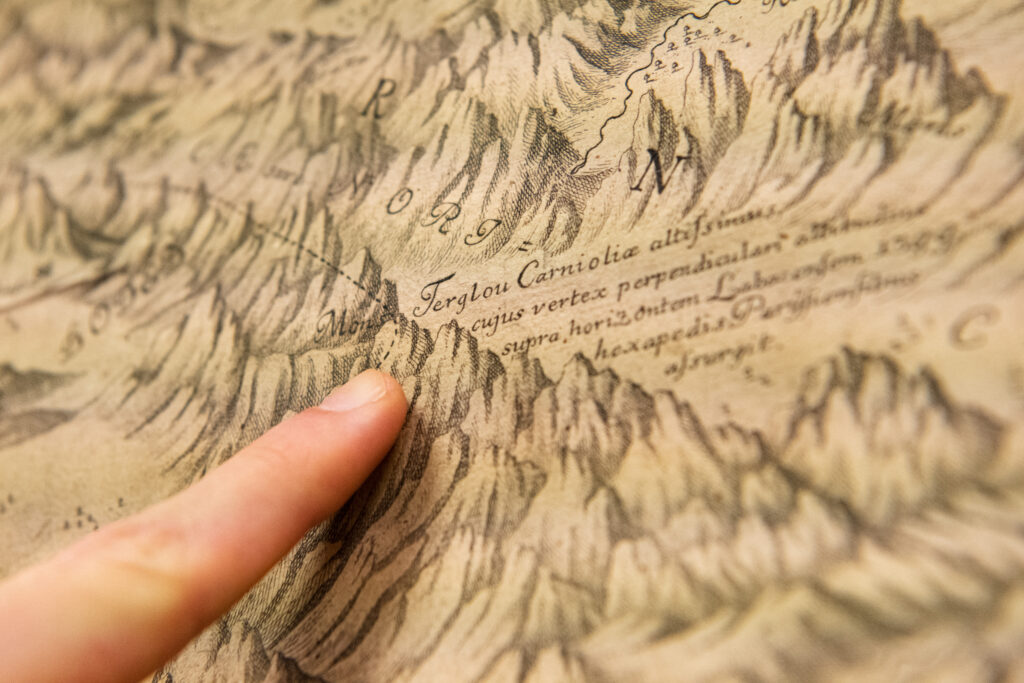 R
N
NORI=
C
Mons
Terglou Carnioliæ altiſsimus,
cujus vertex perpendiculari altitudine
supra horizontem Labacensem 1399
hexapedis Parisiensibus
aſsurgit.